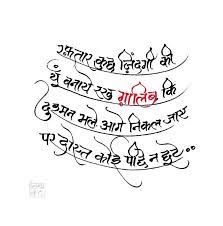 रफ़्तार कुछ ज़िंदगी की
यूँ बनाये रख ग़ालिब कि
दुश्मन भले आगे निकल जाए
पर दोस्त कोई पीछे न छुटे..